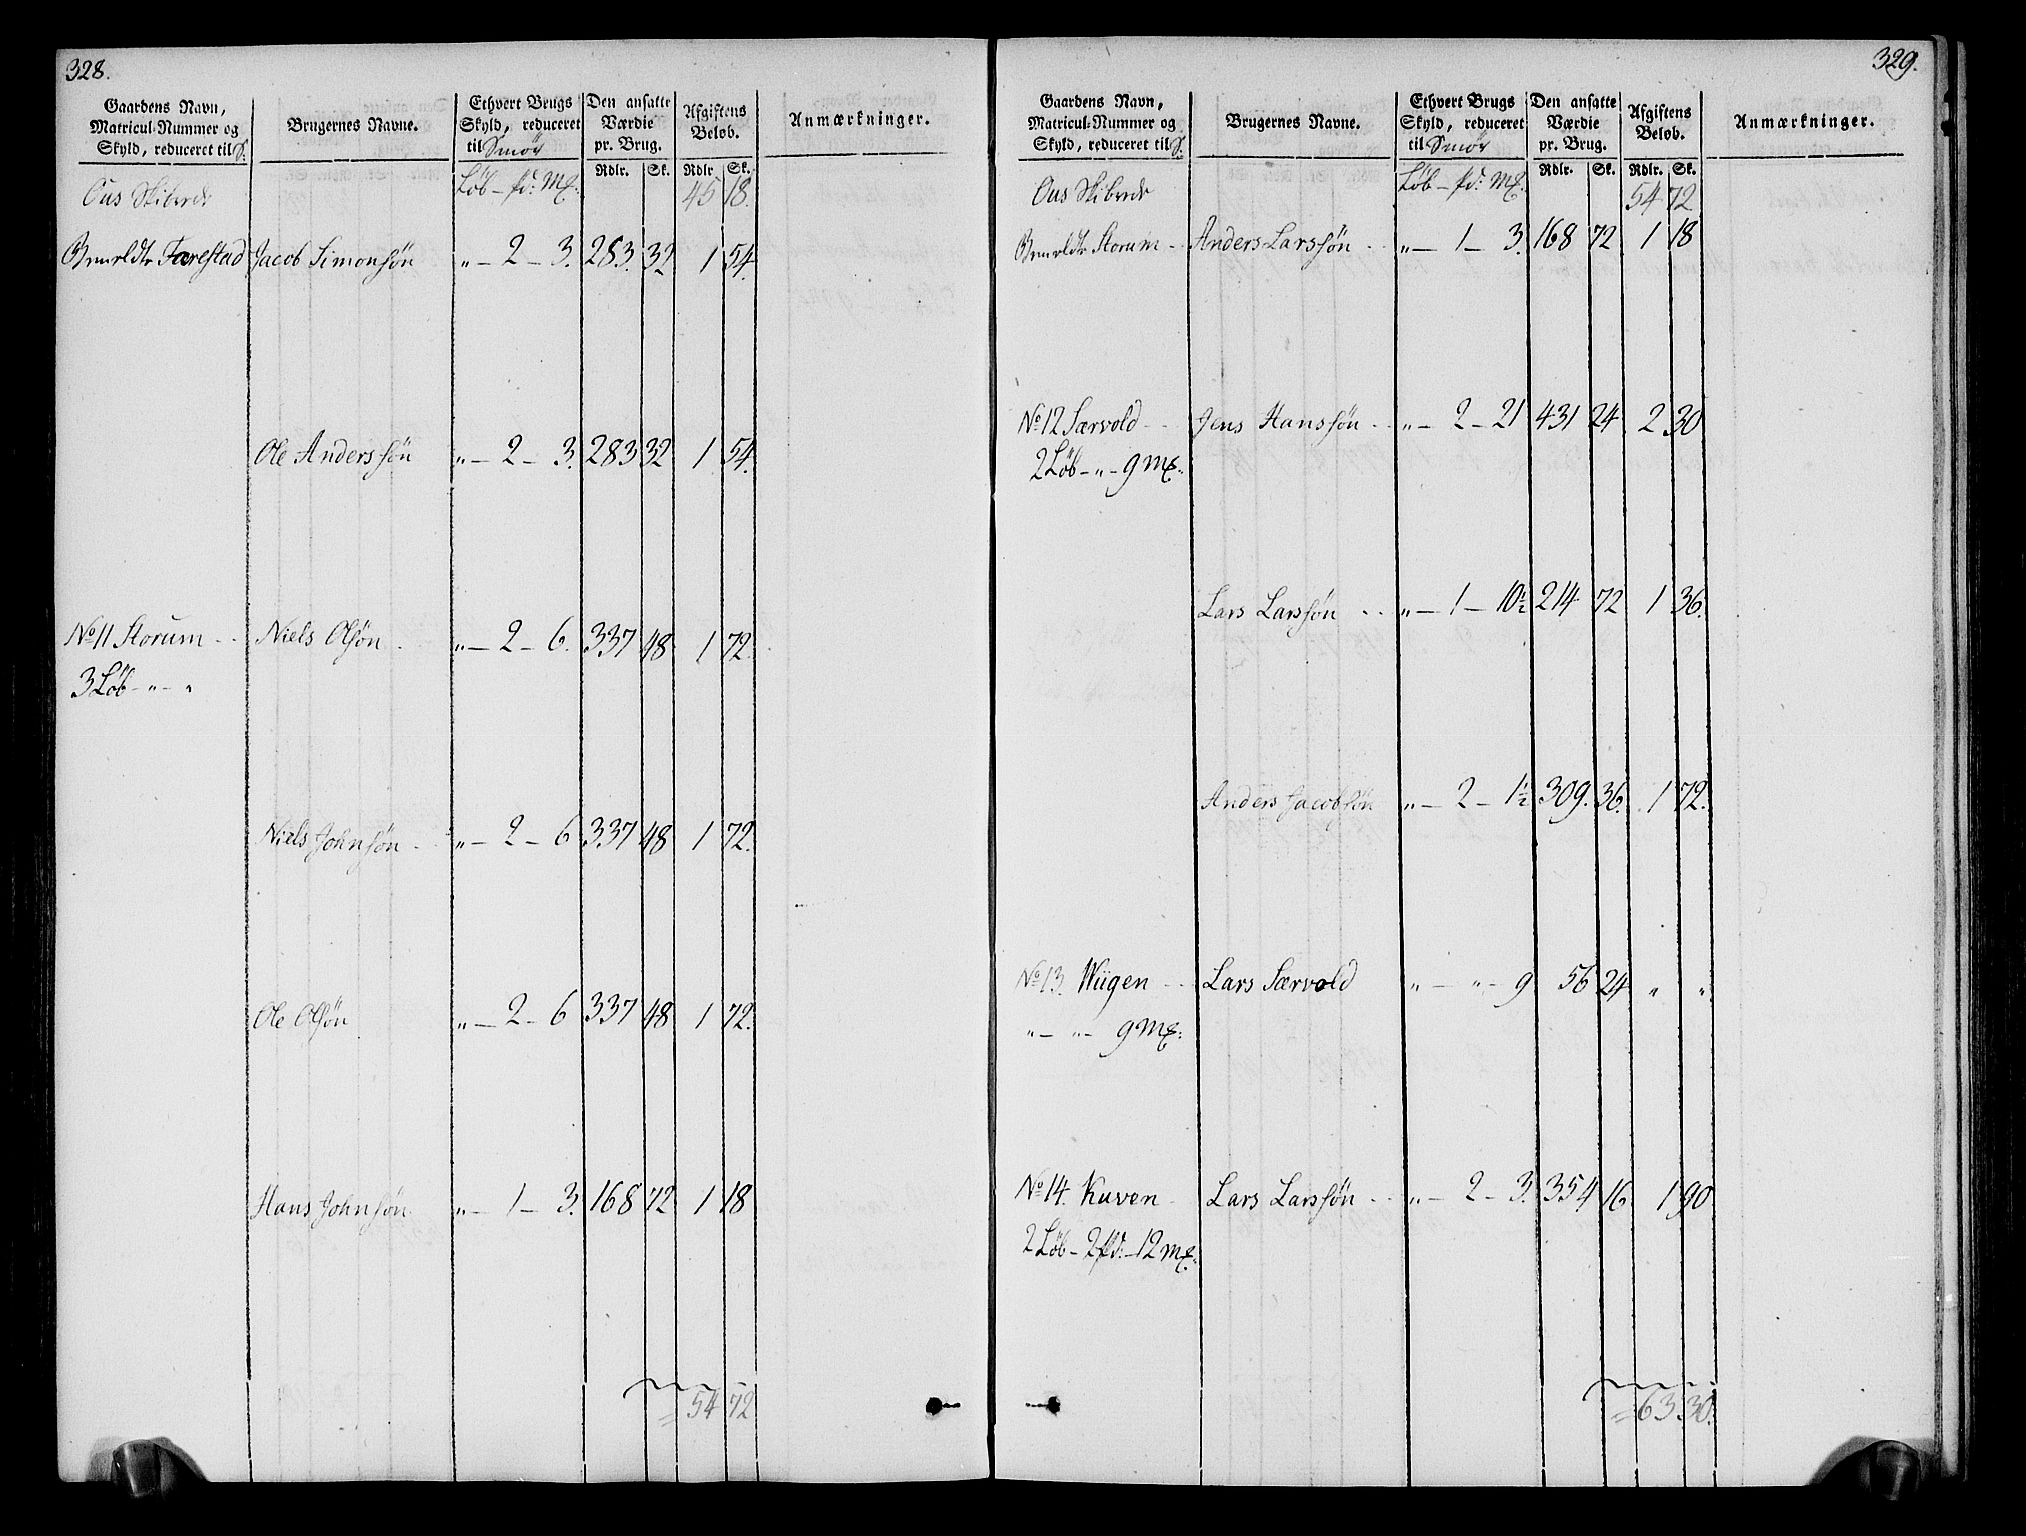 328.
Gaardens Navn, Matricul-Nummer og Skyld, reduceret til S.
Brugernes Navne.
Ethvert Brugs Skyld, reduceret til Smör
Den ansatte Værdie pr. Brug.
Afgiftens Beløb.
Anmærkninger.
Rdlr. Sk. Rdlr Sk.
Ous Skibrede Löb - pd: Mk: 45 18.
Farestad Jacob Simonsön „ - 2 - 3. 283. 32 1 54.
Ole Anderssön „ - 2 - 3. 283 32 1 54.
No 11 Storum - - Niels Olsön - „ - 2 - 6. 337 48 1 72.
3 Löb - „ - „
Niels Johnsön - „ - 2 - 6 337 48 1 72.
Ole Olsön „ - 2 - 6 337 48 1 72.
Hans Johnsön „ - 1 - 3. 168 72 1 18
= 54 72
329.
Gaardens Navn, Matricul-Nummer og Skyld, reduceret til S.
Brugernes Navne.
Ethvert Brugs Skyld, reduceret til Smör
Den ansatte Værdie pr. Brug.
Afgiftens Beløb.
Anmærkninger.
Rdlr. Sk. Rdlr. Sk.
Ous Skibrede Löb - pd: Mk: 54 72
Storum - Anders Larssön - „ - 1 - 3. 168 72 1 18
No 12 Særvold - - Jens Hanssön - - „ - 2 - 21 431 24 2 30
2 Löb - „ - 9 Mk:
Lars Larssön - - „ - 1 - 10½ 214 72 1 36.
Anders Jacobsön „ - 2 - 1½ 309. 36. 1 72.
No 13. Wiigen - - Lars Særvold „ - „ - 9 56 24 „ „
„ - „ - 9 Mk:
No 14. Kuven - Lars Larssön - - „ - 2 - 3. 354 16 1 90
2 Löb - 2 pd: - 12 Mk:
= 63. 30.